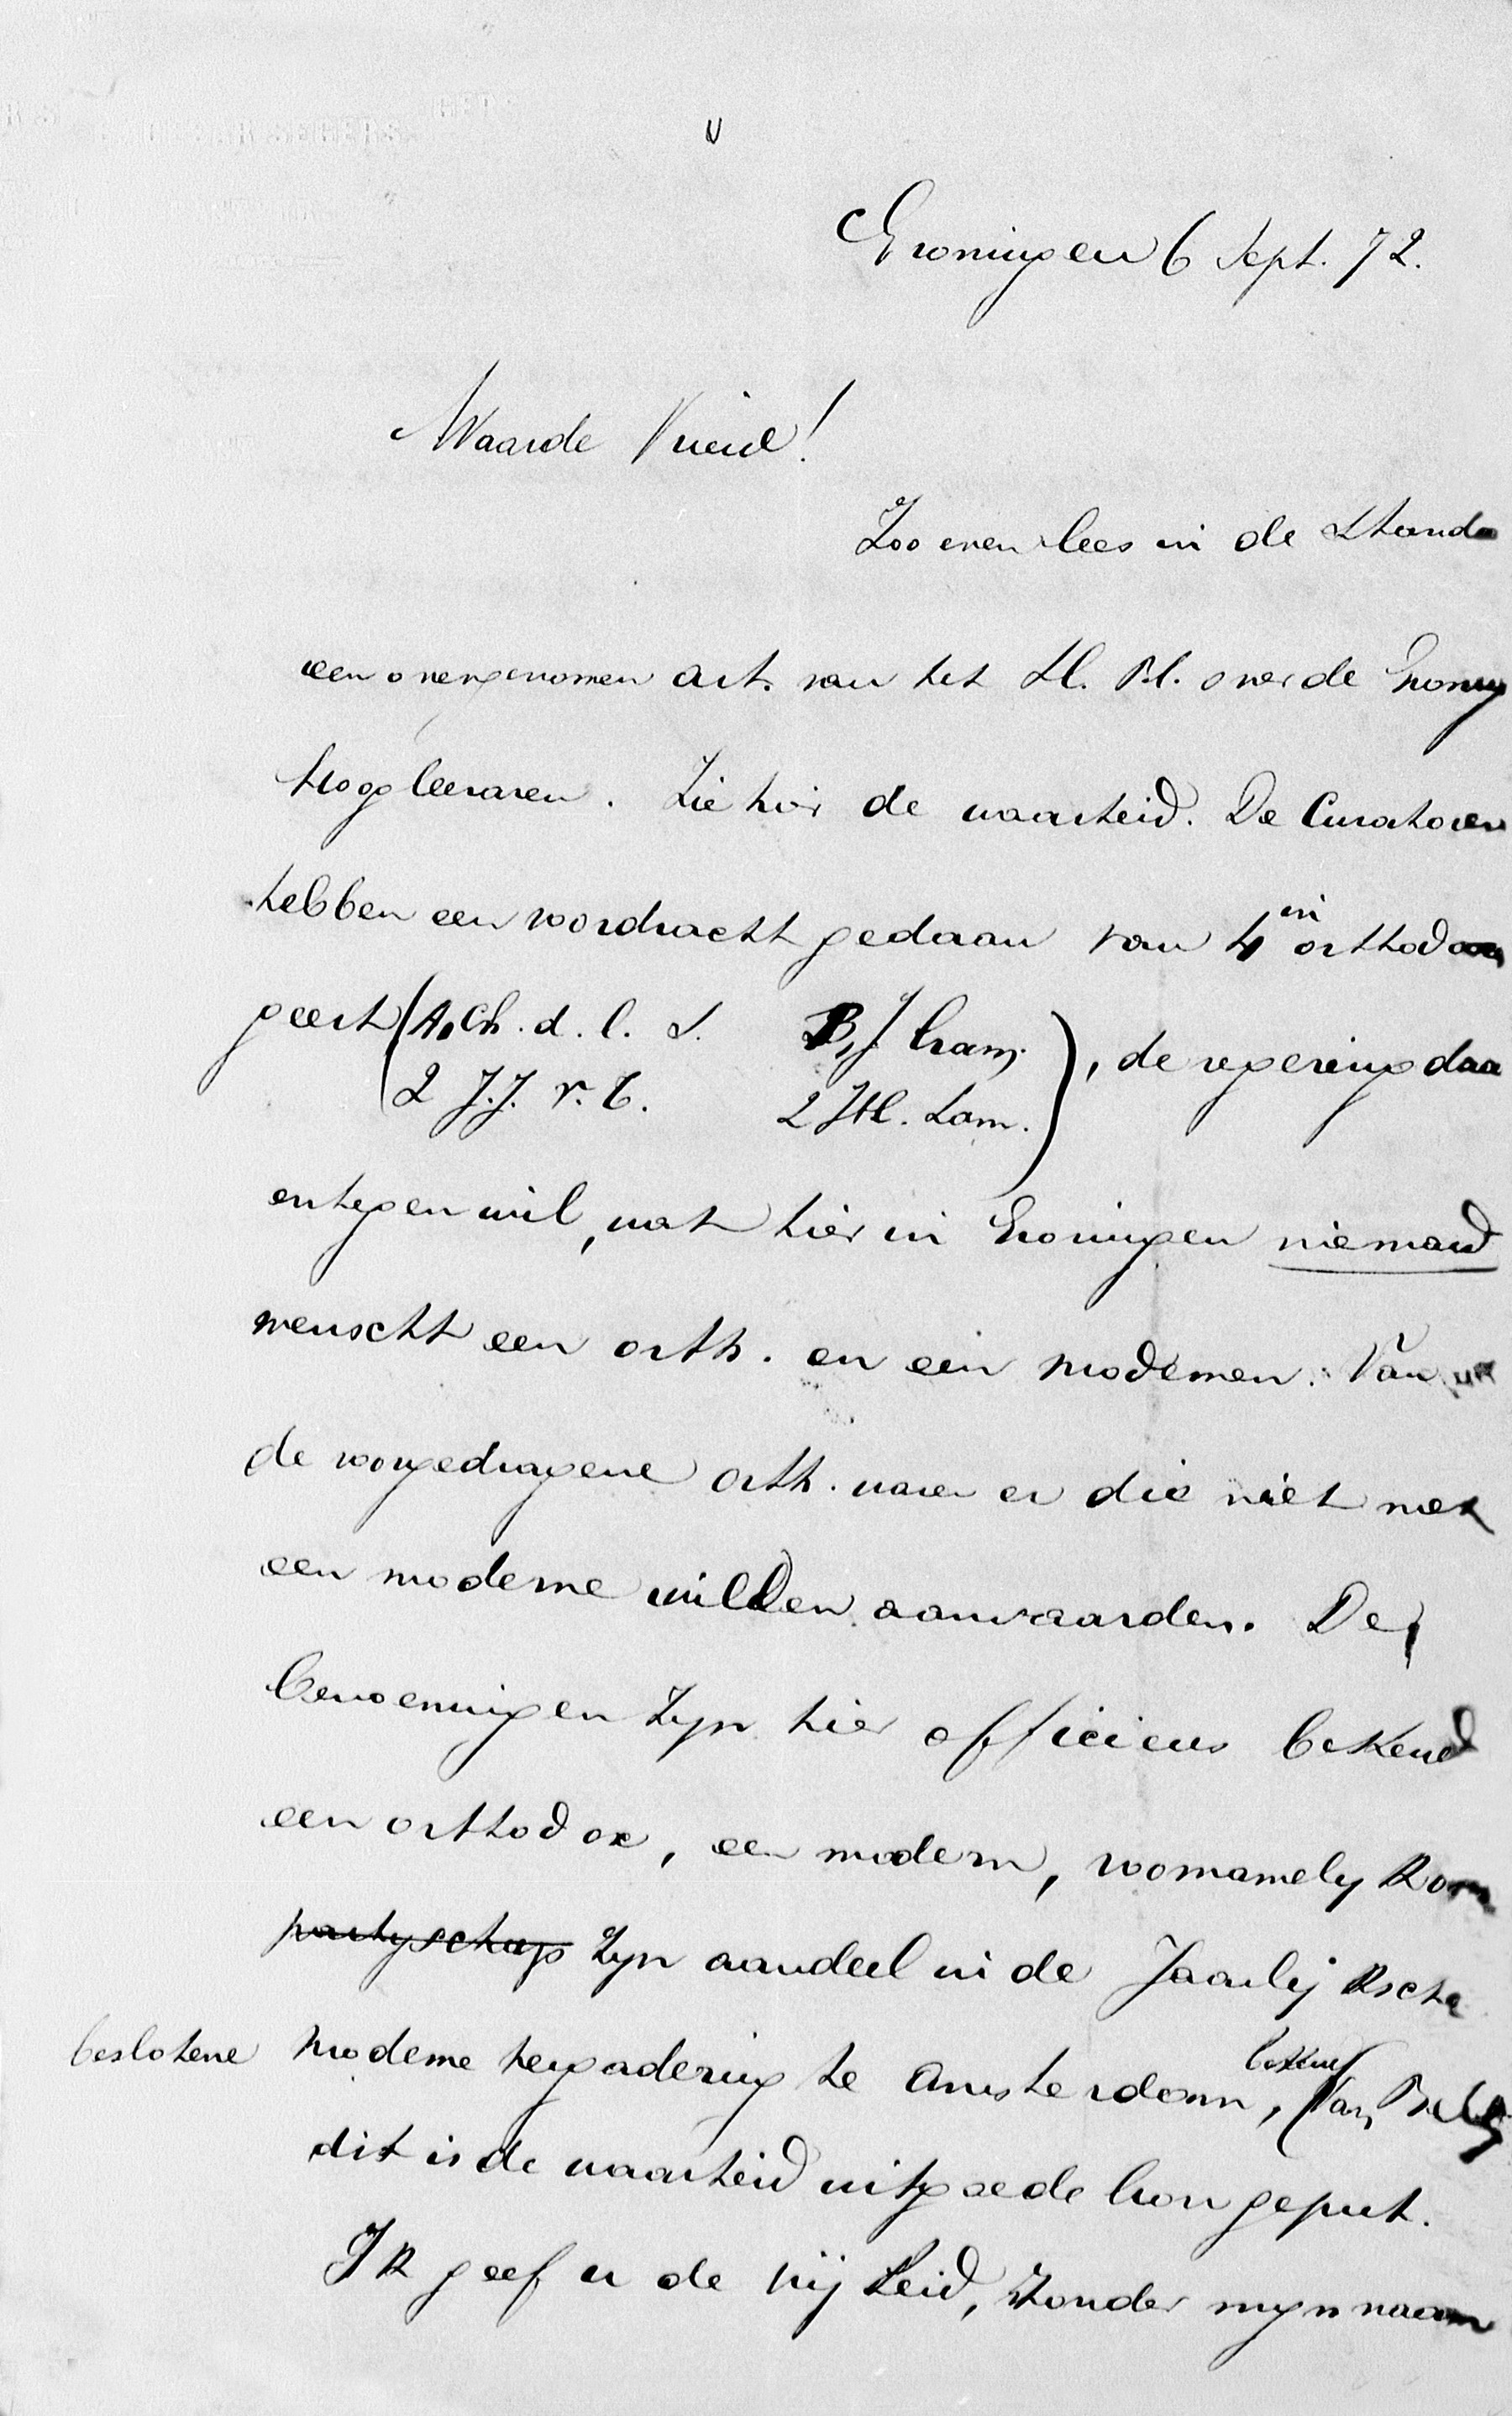 Groningen 6 Sept. 72.
Waarde Vriend!
Zoo even lees in de Standa
een overgenomen art. van het H. Bl. over de Groning
hoogleeraren. Zie hier de waarheid. De Curatoren
hebben een voordracht gedaan van 4 in orthodoxen
geest (A. Ch. d. l. S. B. J Cram.
2 J.J. v. T. 2 JH. Lam.), de regering daa
entegen wil, wat hier in Groningen niemand
wenscht een orth. en een modernen. Van
de voorgedragene orth. waren er die niet met
een moderne wilden aanvaarden. De
benoemingen zyn hier officieus bekend
een orthodox, een modern, voornamely kom
partyschap zyn aandeel in de Jaarlijksche
beslotene moderne vergadering te Amsterdam, bekend (van Bell
dit is de waarheid uit goede bron geput.
Ik geef u de vrijheid, zonder myn naam